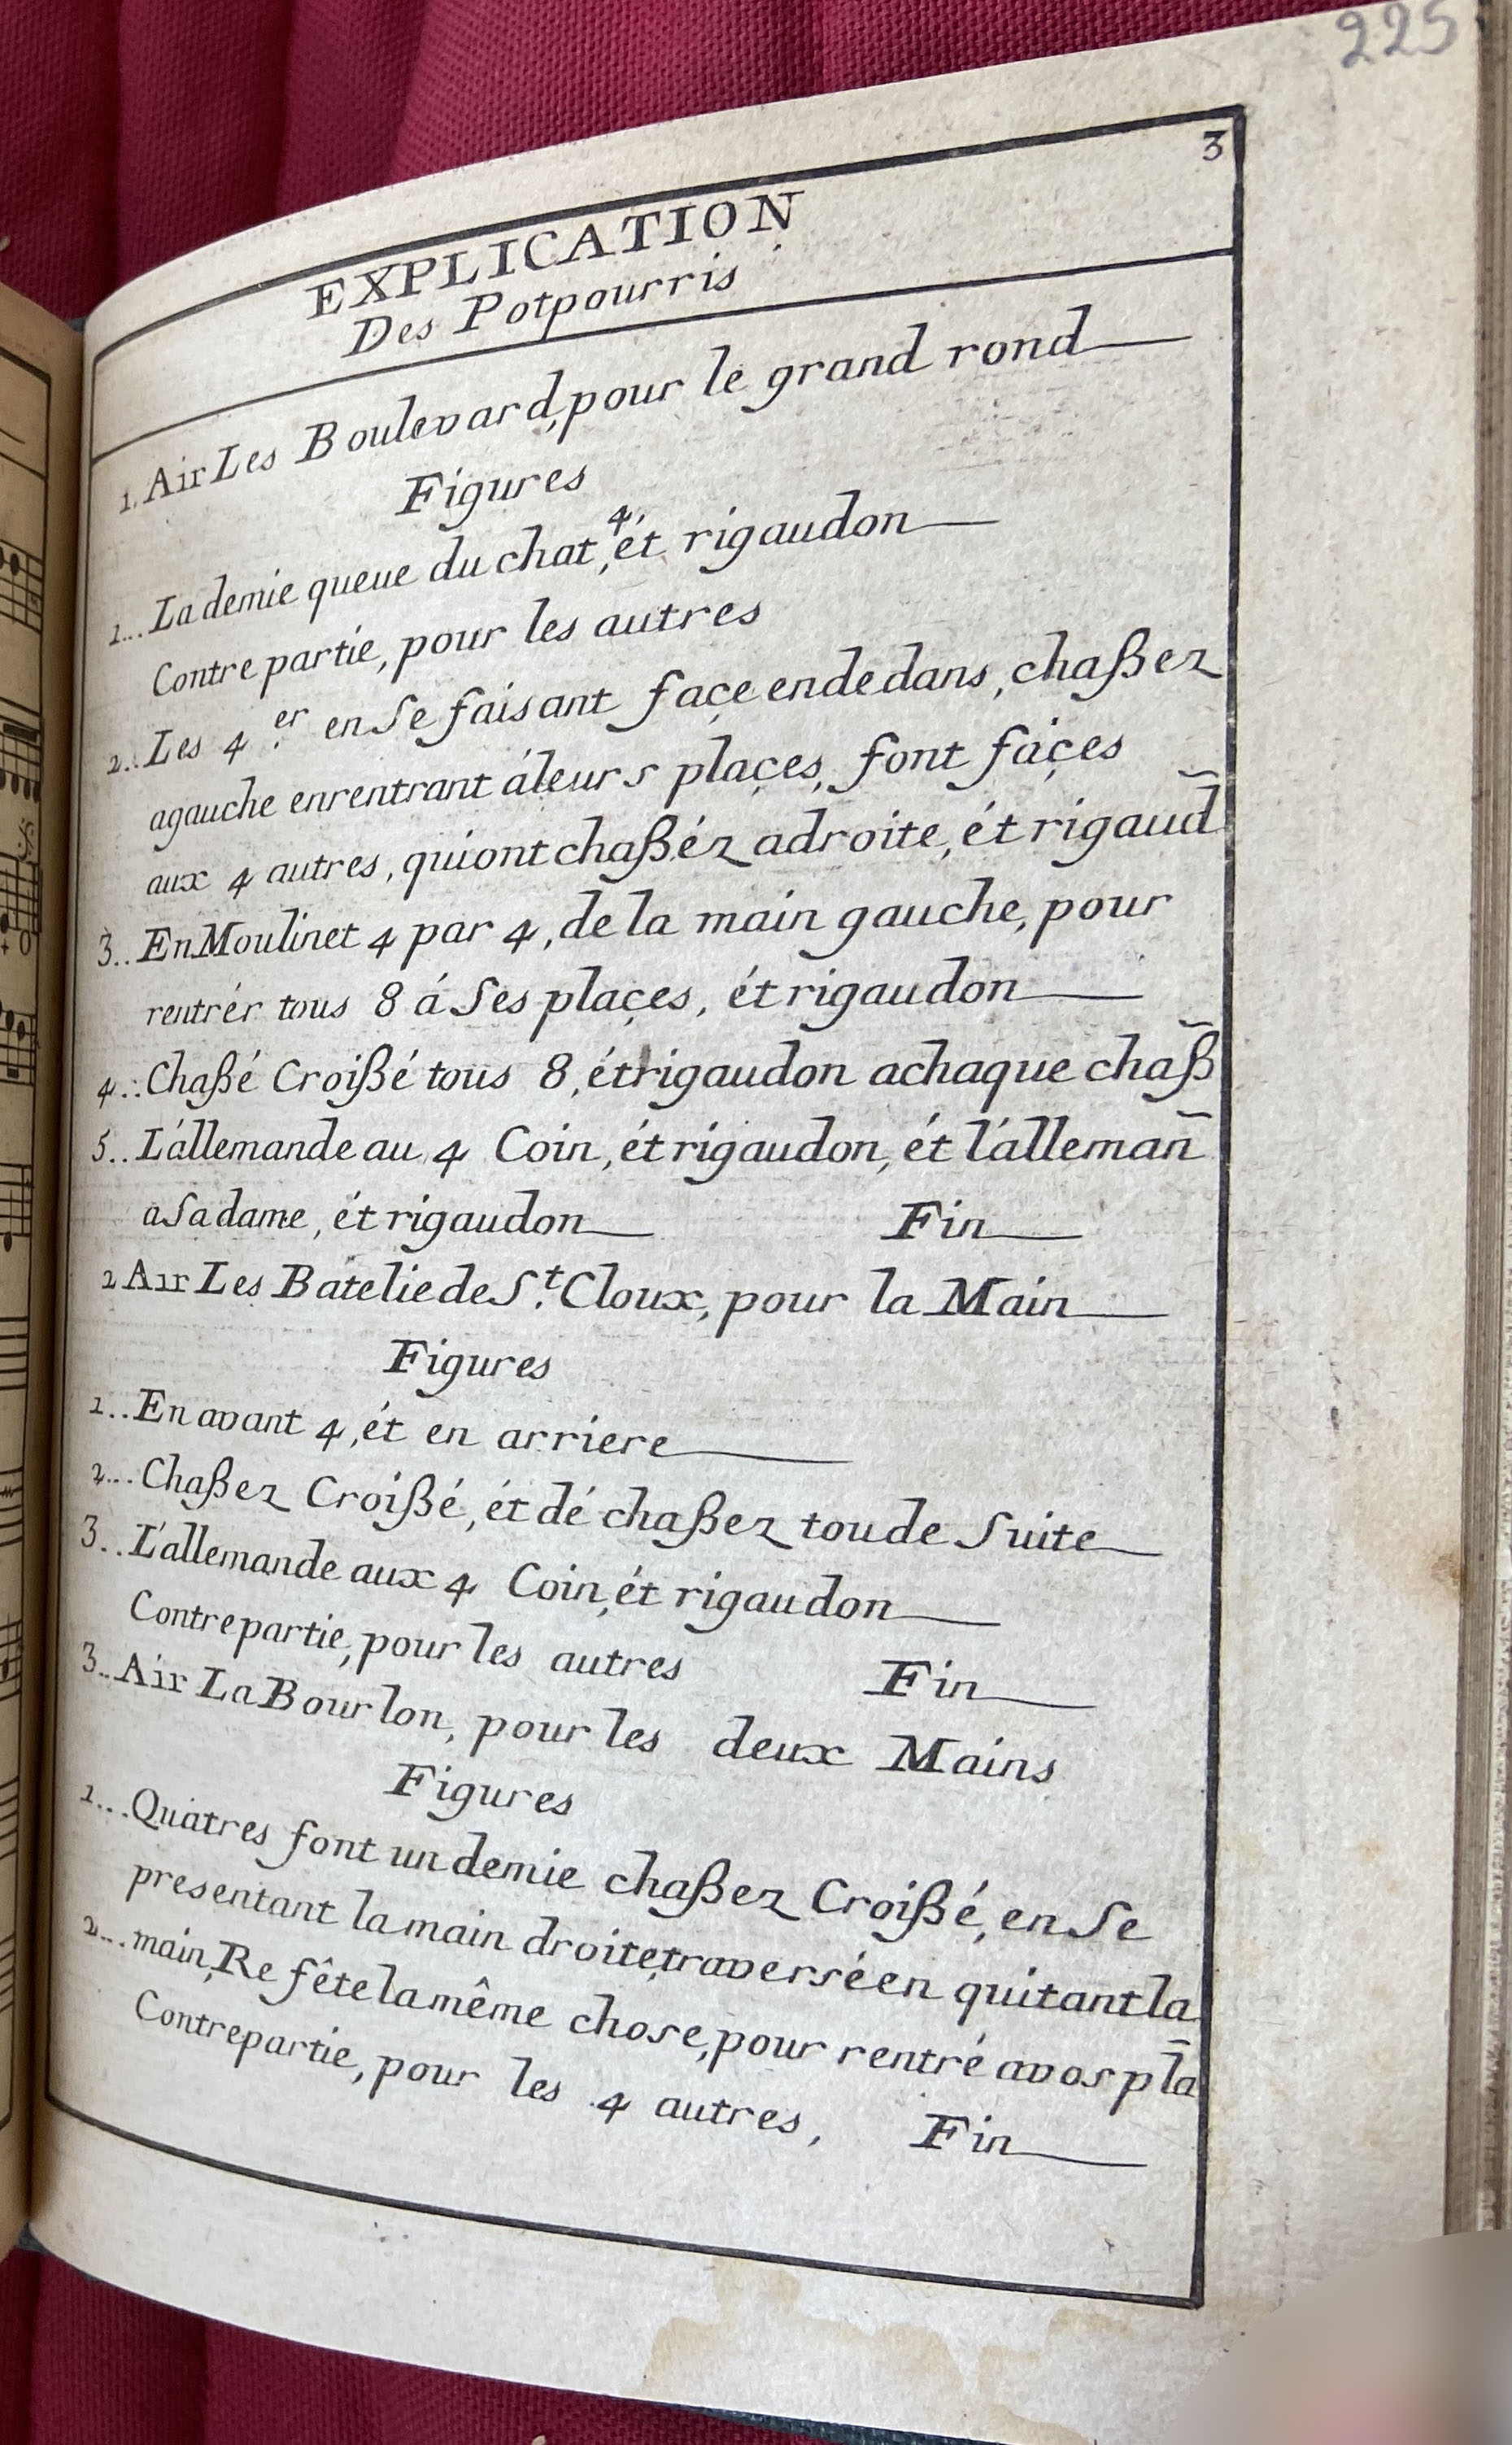 225
3
EXPLICATION
Des Potpourris
1. Air Les Boulevard, pour le grand rond
Figures
1... La demie queue du chat, 4, ét rigaudon
Contre partie, pour les autres
2.. Les 4.er en se faisant façe en dedans, chaßez
agauche enrentrant áleurs plaçes, font façes
aux 4 autres, quiont chaßéz adroite, ét rigaud̃
3.. En Moulinet 4 par 4, de la main gauche, pour
rentrér tous 8 á ses plaçes, ét rigaudon
4.. Chaßé Croißé tous 8, ét rigaudon achaque chaß̃
5.. L'állemande au 4 Coin, ét rigaudon, ét l'állemañ
a sa dame, ét rigaudon Fin
2 Air Les Batelie de S.t Cloux, pour la Main
Figures
1.. En avant 4, ét en arriere
2... Chaßez Croißé, ét dé chaßez toude suite
3.. L'állemande aux 4 Coin, ét rigaudon
Contrepartie, pour les autres Fin
3.. Air La Bourlon, pour les deux Mains
Figures
1... Quatres font un demie chaßez Croißé, en se
presentant la main droite, traversé en quitant la
2... main, Re fête la même chose, pour rentré avos pla̅
Contrepartie, pour les 4 autres, Fin